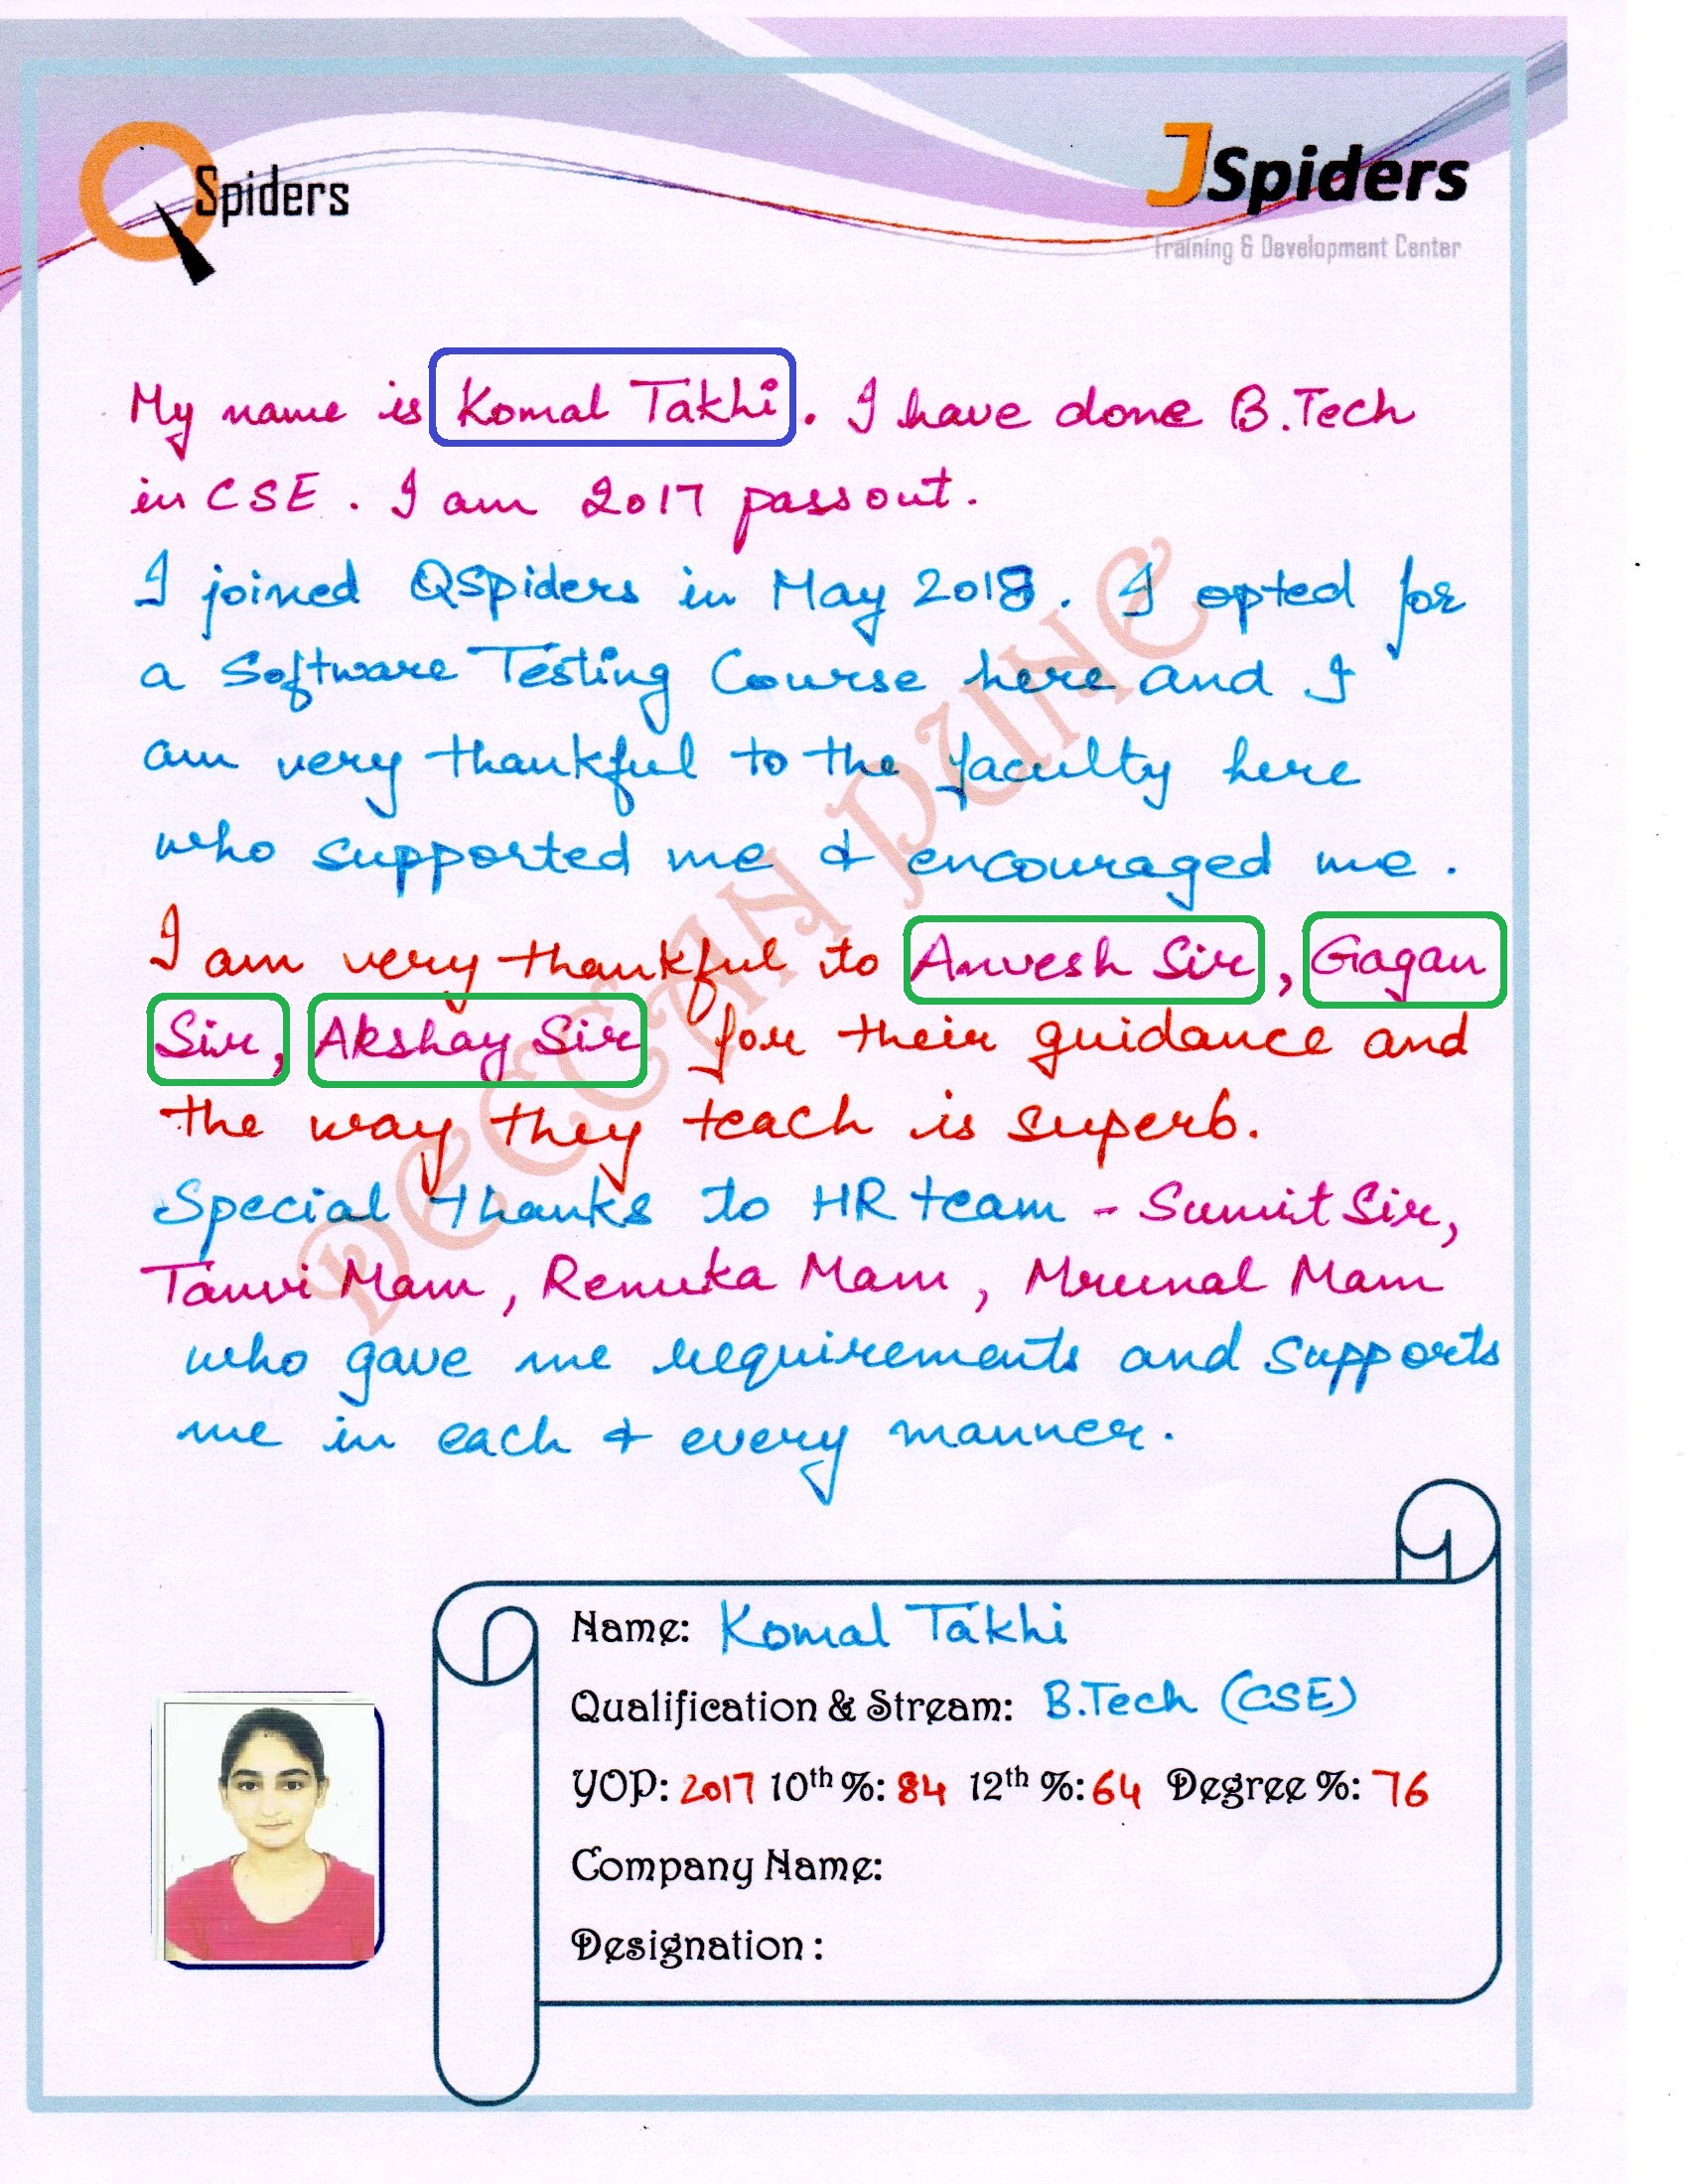 QSpiders
JSpiders
Training & Development Center
My name is Komal Takhi. I have done B.Tech
in CSE. I am 2017 passout.
I joined QSpiders in May 2018. I opted for
a Software Testing Course here and I
am very thankful to the faculty here
who supported me & encouraged me.
I am very thankful to Anvesh Sir, Gagan
Sir, Akshay Sir for their guidance and
the way they teach is superb.
Special thanks to HR team - Sumit Sir,
Tanvi Mam, Renuka Mam, Mrunal Mam
who gave me requirements and supports
me in each & every manner.
DECCAN PUNE
Name: Komal Takhi
Qualification & Stream: B.Tech (CSE)
YOP: 2017 10th %: 84 12th %: 64 Degree %: 76
Company Name:
Designation :